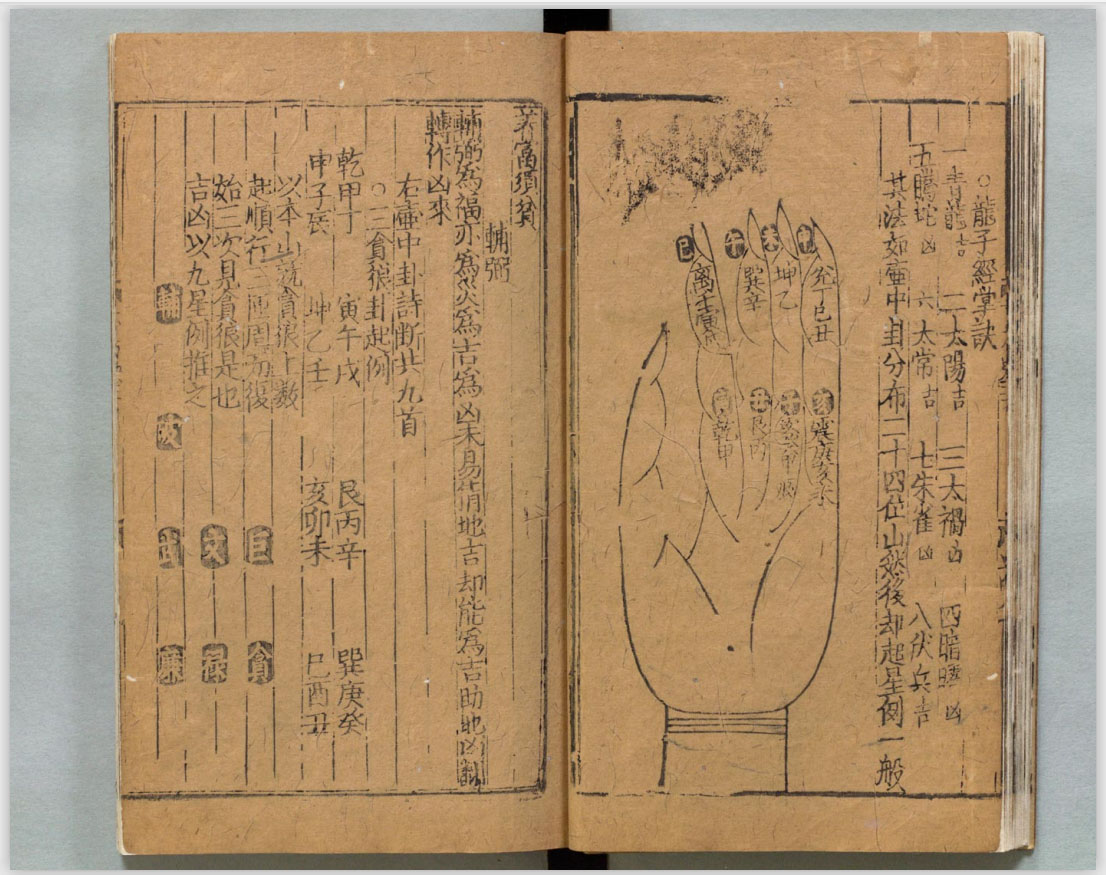 ○龍子經掌訣
一青龍吉 二太陽吉 三太禍凶 四暗曀凶
五騰蛇凶 六太常吉 七朱雀凶 八伏兵吉
其法如壷中卦分布二十四位山然後却起星例一般
兌丁巳丑
未
坤乙
午
巽辛
巳
離壬寅戌
亥
震庚亥未
子
丑
艮丙
乾甲
輔弼
輔弼為福亦為災為吉為凶未易猜地吉却能為吉助地凶
轉作凶來
右壷中卦詩断共九首
○三貪狼卦起例
乾甲丁 寅午戌 艮丙辛 巽庚癸
申子辰 坤乙壬 亥卯未 巳酉丑
以本山就貪狼上數
起順行三匝周而復
始三次見貪狼是也
吉凶以九星例推之
貪
巨
祿
文
廉
武
破
輔